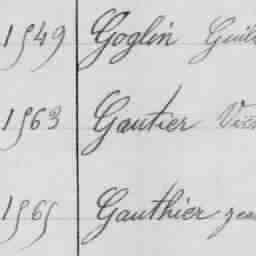 1549 Goglin Guil
1563 Gautier Vic
1565 Gauthier jea